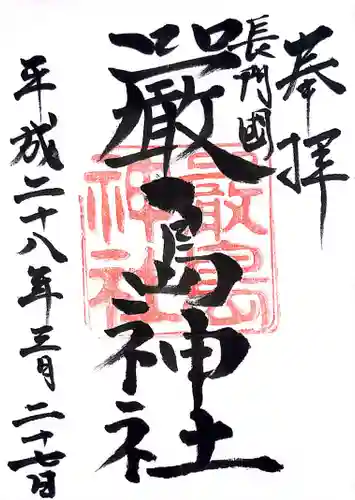 奉拝
長門國
厳島神社
厳島神社
平成二十八年三月二十七日